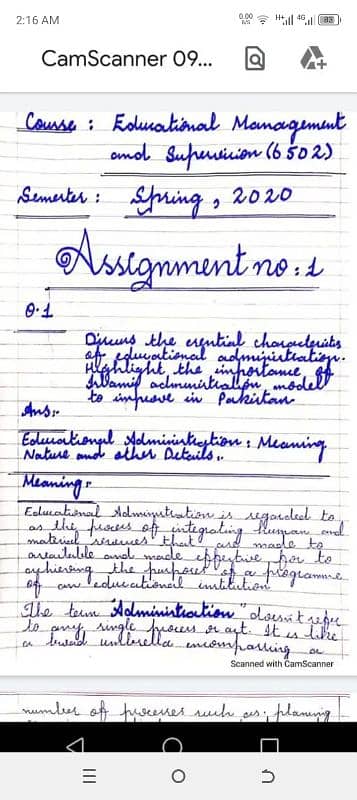 2:16 AM
0.00 K/S H+ 4G 83
CamScanner 09...
Course : Educational Management
and Supervision (6502)
Semester : Spring , 2020
Assignment no : 1
Q.1
Discuss the essential characteristics
of educational administration.
Highlight the importance of
Islamic administration model
to improve in Pakistan
Ans:-
Educational Administration : Meaning
Nature and other Details:.
Meaning:
Educational Administration is regarded to
as the process of integrating human and
material resources that are made to
available and made effective for to
achieving the purposes of a programme
of an educational institution
The term "Administration" doesn't refer
to any single process or act. It is like
a broad umbrella encompassing a
Scanned with CamScanner
number of processes such as: planning